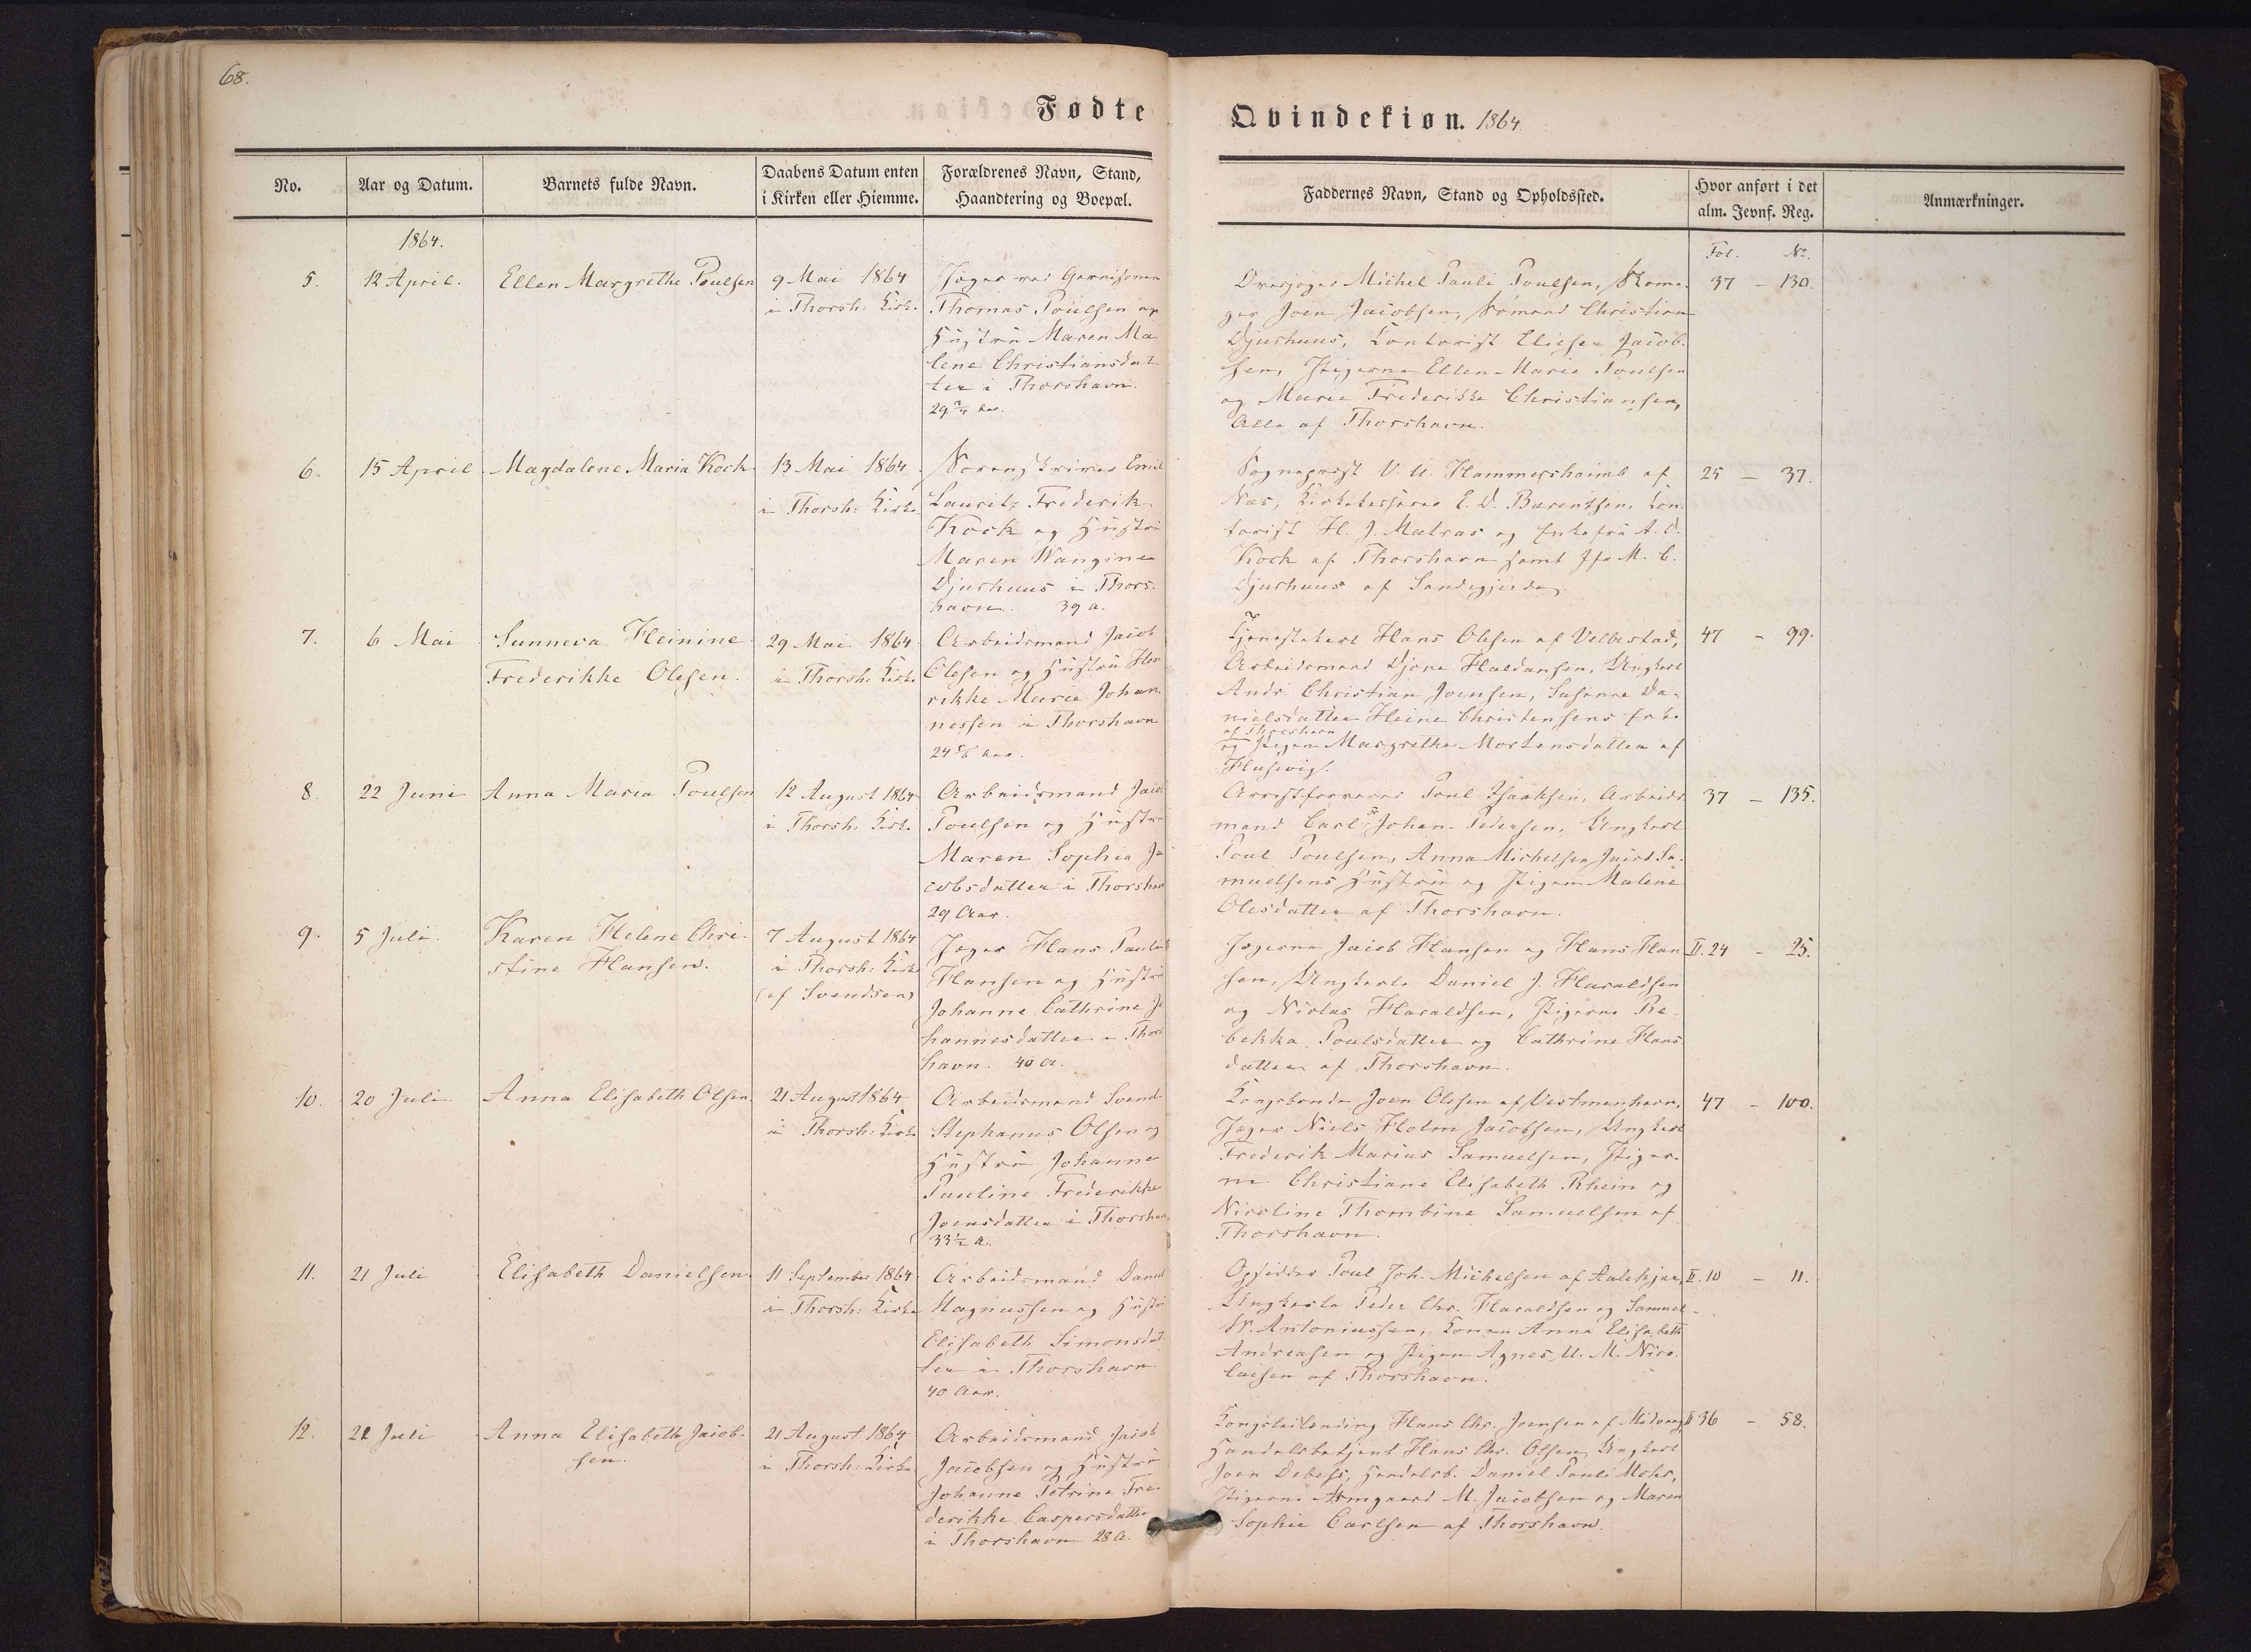 68.
Fødte
Qvindekiøn. 1864
No.
Aar og Datum.
Barnets fulde Navn.
Daabens Datum enten
i Kirken eller Hiemme.
Forældrenes Navn, Stand,
Haandtering og Boepæl.
Faddernes Navn, Stand og Opholdssted.
Hvor anført i det
alm. Jevnf. Reg.
Anmærkninger.
1864.
Fol. No.
5.
12 April.
Ellen Margrethe Poulsen
9 Mai 1864
i Thorsh: Kirke.
Jæger ved Garnisonen
Thomas Poulsen og
Hustru Maren Ma
lene Christiansdat
ter i Thorshavn.
29 Aar.
Michel Pauli Poulsen,
Joen Jacobsen, Christian
Djurhuus, Kontorist Eliesar Jacob-
sen, Pigerne Ellen Marie Poulsen
og Marie Frederikke Christiansen,
Alle af Thorshavn.
37 - 130.
6.
15 April.
Magdalene Maria Koch
13 Mai 1864
i Thorsh: Kirke.
Sorenskriver Emil
Lauritz Frederik
Koch og Hustru
Maren Wangine
Djurhuus i Thors-
havn. 39 a.
Sognepræst V. U. Hammershaimb af
Næs, E. D. Bærentsen, Kon-
torist H. J. Matras og Enkefru A. D.
Koch af Thorshavn samt M. C.
Djurhuus af Sandegjerde.
25 - 37.
7.
6 Mai
Sunneva Heinine
Frederikke Olesen.
29 Mai 1864
i Thorsh: Kirke
Arbeidsmand Jacob
Olesen og Hustru Hen
rikke Marie Johan
nessen i Thorshavn
24 5/6 Aar.
Tjenestekarl Hans Olesen af Velbestad,
Arbeidsmand Djone Haldansen, Ungkarl
Andr. Christian Joensen, Susanne Da-
nielsdatter Heine Christensens Enke
af Thorshavn
og Pigen Margrethe Mortensdatter af
Husevig.
47 - 99.
8.
22 Juni
Anna Maria Poulsen
12 August 1864
i Thorsh: Kirke
Arbeidsmand Jacob
Poulsen og Hustru
Maren Sophia Ja
cobsdatter i Thorshavn
29 Aar.
Arrestforvarer Poul Isaksen, Arbeids
mand Carl Johan Pedersen, Ungkarl
Poul Poulsen, Anna Michelsen Jacob Sa-
muelsens Hustru og Pigen Malene
Olesdatter af Thorshavn.
37 - 135.
9.
5 Juli.
Karen Helene Chri-
stine Hansen.
7 August 1864
i Thorsh: Kirke
(af Svendsen)
Jæger Hans Pauli
Hansen og Hustru
Johanne Cathrine Jo
hannesdatter i Thors
havn. 40 A.
Jægerne Jacob Hansen og Hans Han
sen, Ungkarle Daniel J. Haraldsen
og Niclas Haraldsen, Pigerne Re-
bekka Poulsdatter og Cathrine Hans
datter af Thorshavn.
II. 24 - 25.
10.
20 Juli.
Anna Elisabeth Olsen.
21 August 1864
i Thorsh: Kirke
Arbeidsmand Svend
Stephanus Olsen og
Hustru Johanne
Pauline Frederikke
Joensdatter i Thorshavn
33 1/2 A.
Kongsbonde Joen Olesen af Vestmanhavn,
Jæger Niels Holm Jacobsen, Ungkarl
Frederik Marius Samuelsen, Piger-
ne Christiane Elisabeth Rhein og
Nicoline Thombine Samuelsen af
Thorshavn.
47 - 100.
11.
21 Juli
Elisabeth Danielsen.
11 September 1864
i Thorsh: Kirke
Arbeidsmand Daniel
Magnussen og Hustru
Elisabeth Simonsdat
ter i Thorshavn.
40 Aar.
Opsidder Poul Joh. Michelsen af Kalekjær,
Ungkarle Peder Chr. Haraldsen og Samuel
W. Antoniussen, Konen Anna Elisabeth
Andreasen og Pigen Agnes U. M. Nico-
laisen af Thorshavn.
II. 10 - 11.
12.
22 Juli
Anna Elisabeth Jacob-
sen.
21 August 1864
i Thorsh: Kirke
Arbeidsmand Jacob
Jacobsen og Hustru
Johanne Petrine Fre-
derikke Caspersdatter
i Thorshavn 28 A.
Hans Chr. Joensen af Midvaag,
Handelsbetjent Hans Chr. Olsen, Ungkarl
Joen Debess, Handelsb. Daniel Pauli Mohr,
Pigerne Armgaard M. Jacobsen og Maren
Sophie Carlsen af Thorshavn.
II 36 - 58.